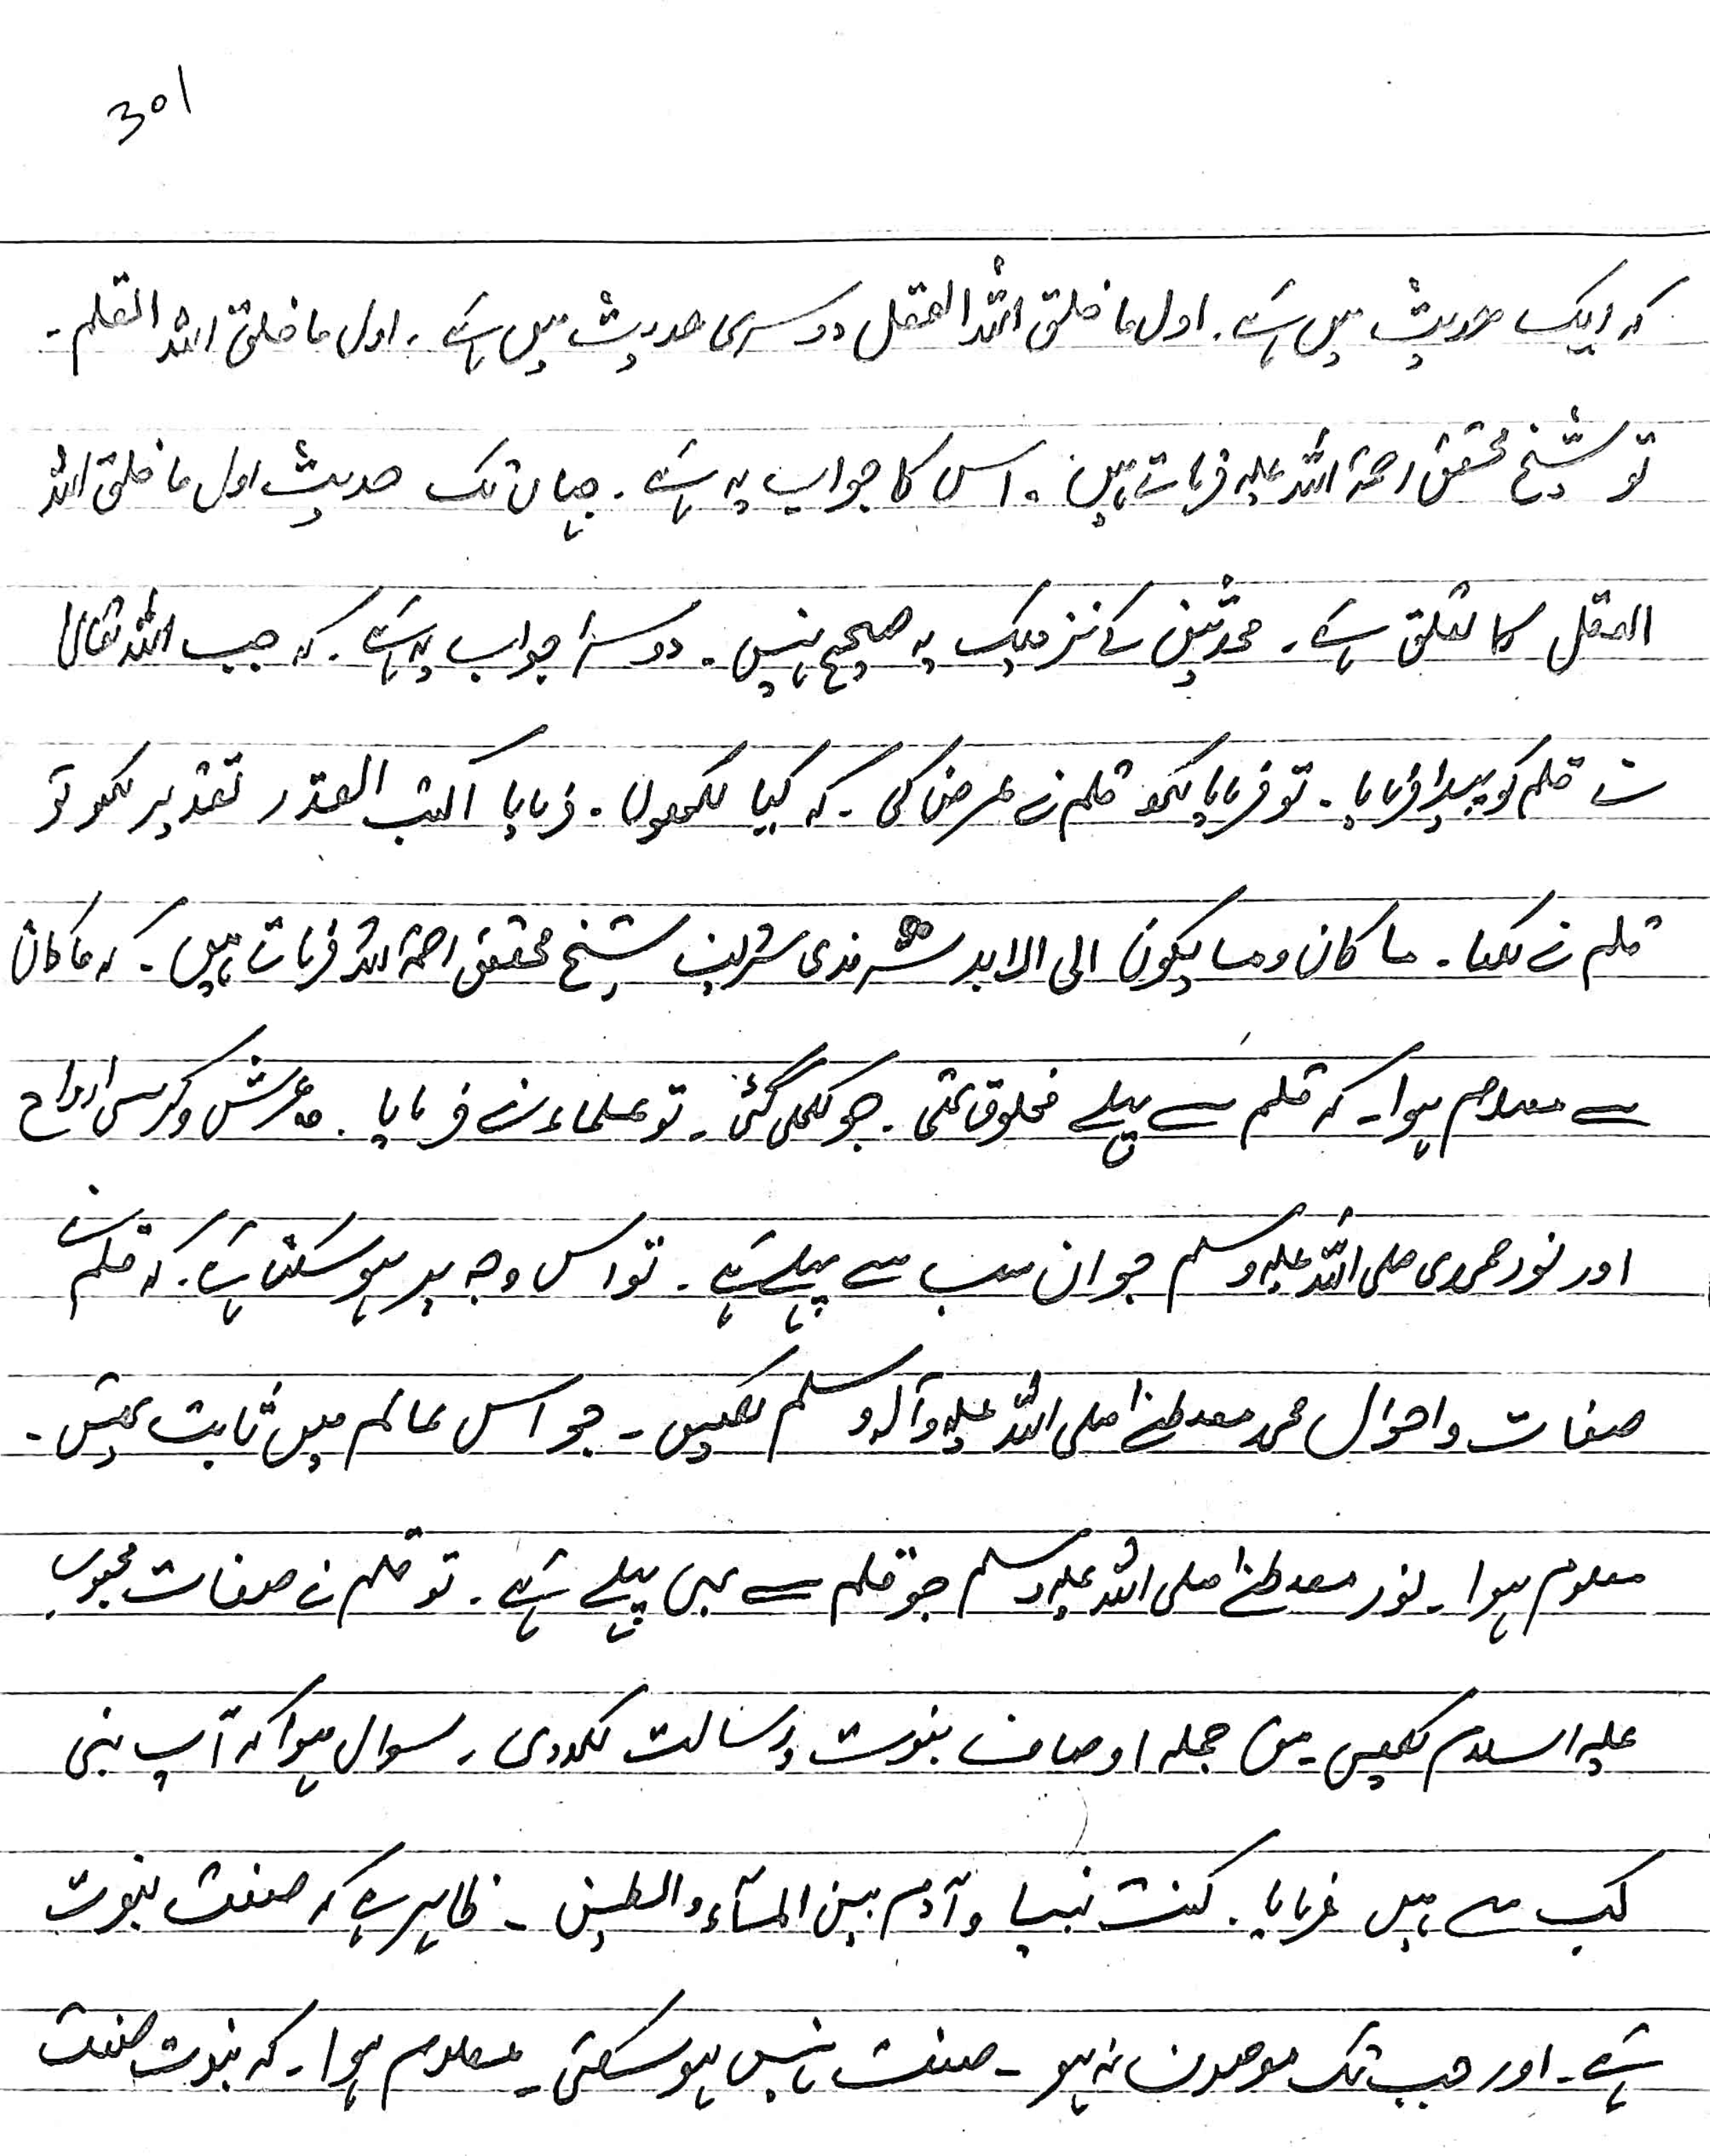 301
کہ ایک حدیث میں ہے ۔ اول ما خلق اللہ العقل دوسری حدیث میں ہے ۔ اول ما خلق اللہ القلم ۔
تو شیخ محقق رحمۃ اللہ علیہ فرماتے ہیں ۔ اس کا جواب یہ ہے ۔ جہاں تک حدیث اول ما خلق اللہ
العقل کا تعلق ہے ۔ محدثین کے نزدیک یہ صحیح نہیں ۔ دوسرا جواب یہ ہے ۔ کہ جب اللہ تعالیٰ
نے قلم کو پیدا فرمایا ۔ تو فرمایا لکھ قلم نے عرض کی ۔ کہ کیا لکھوں ۔ فرمایا اکتب القدر تقدیر لکھو تو
قلم نے لکھا ۔ ما کان وما یکون الی الابد ترمذی شریف شیخ محقق رحمۃ اللہ فرماتے ہیں ۔ کہ ما کان
سے معلوم ہوا ۔ کہ قلم سے پہلے مخلوق تھی ۔ جو لکھی گئی ۔ تو علماء نے فرمایا ۔ وہ عرش و کرسی ارواح
اور نور محمدی صلی اللہ علیہ وسلم جو ان سب سے پہلے ہے ۔ تو اس وجہ پر ہو سکتا ہے ۔ کہ قلم نے
صفات و احوال محمد مصطفےٰ صلی اللہ علیہ وآلہ وسلم لکھیں ۔ جو اس عالم میں ثابت تھیں ۔
معلوم ہوا ۔ نور مصطفےٰ صلی اللہ علیہ وسلم جو قلم سے بھی پہلے ہے ۔ تو قلم نے صفات محبوب
علیہ السلام لکھیں ۔ من جملہ اوصاف نبوت و رسالت لکھ دی ۔ سوال ہوا کہ آپ نبی
کب سے ہیں فرمایا ۔ کنت نبیا وآدم بین المآء والطین ۔ ظاہر ہے کہ صفت نبوت
ہے ۔ اور جب تک موصوف نہ ہو ۔ صفت نہیں ہو سکتی ۔ معلوم ہوا ۔ کہ نبوت صفت